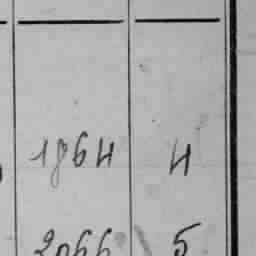 1864 4
2066 5